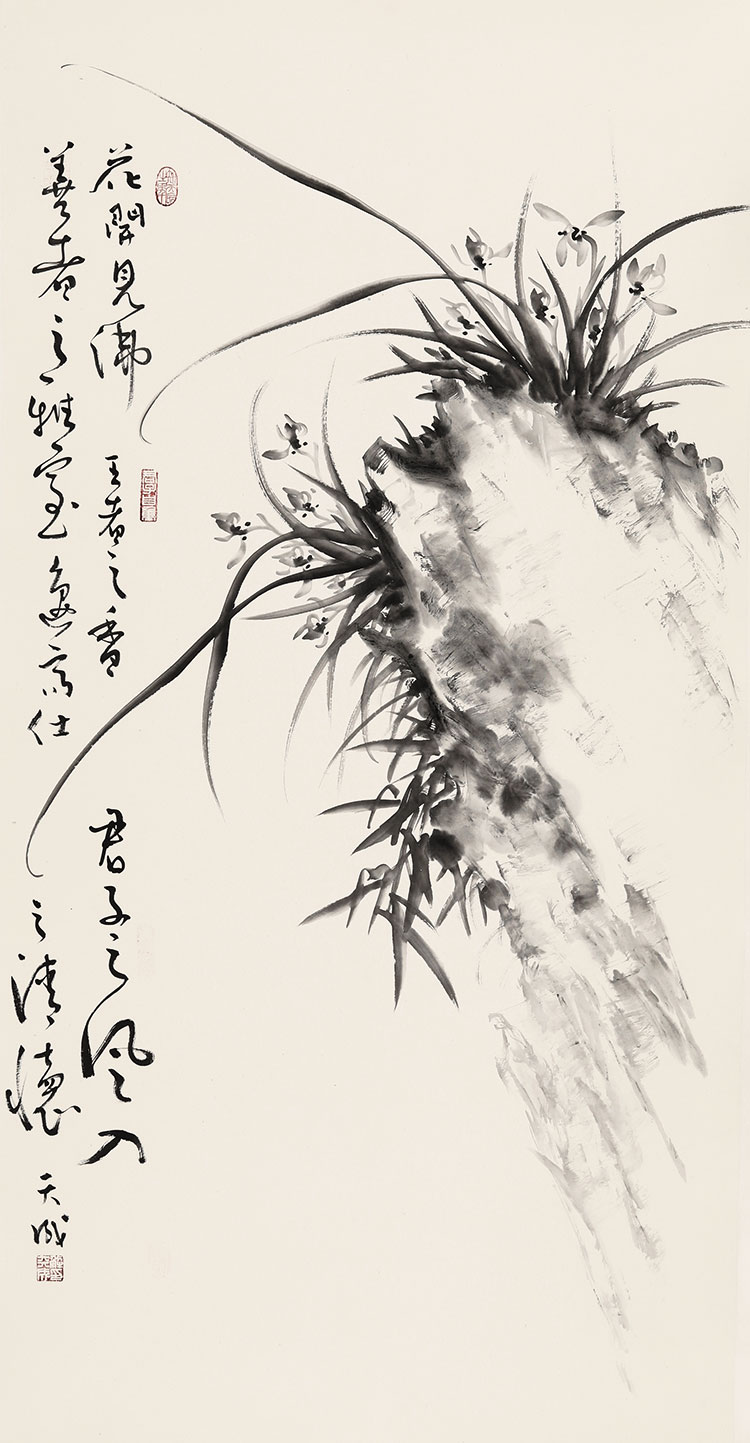 花開見佛 王者之香 君子之風入
善者之雅室 高仕之清懷 天成